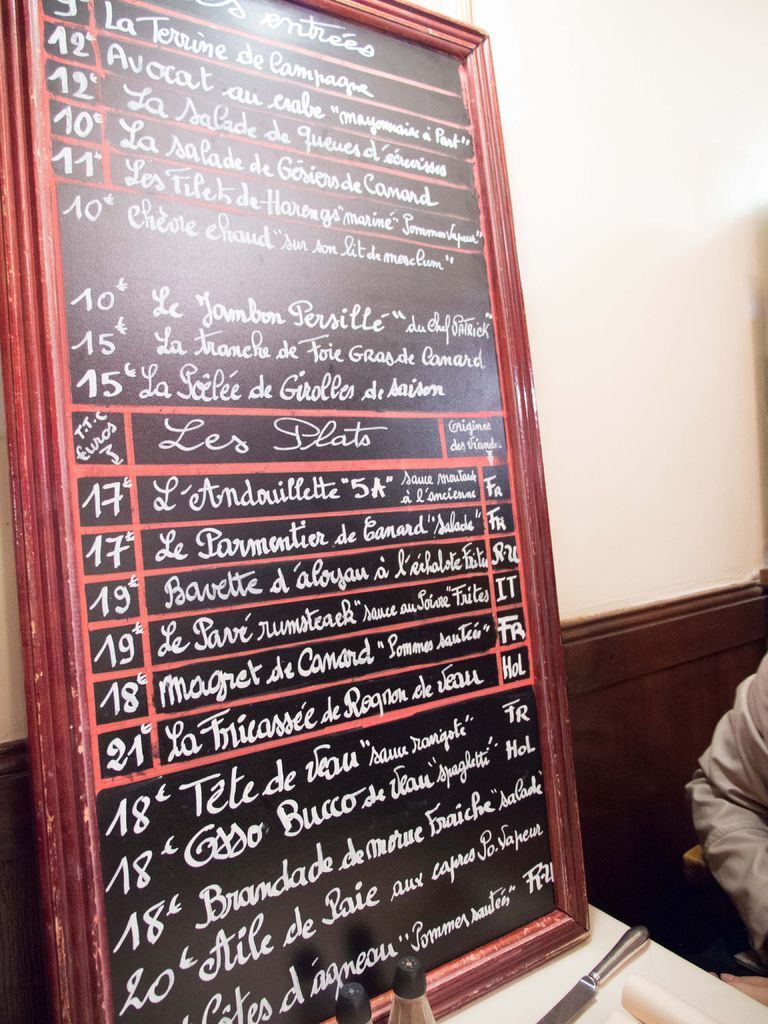 es entrées
9€ La Terrine de Campagne
12€ Avocat au crabe "mayonnaise à Part"
12€ La salade de queues d'écrevisses
10€ La salade de Gésiers de Canard
11€ Les Filets de Harengs "mariné" Pommes Vapeur"
10€ Chèvre chaud "sur son lit de mesclum"
10€ Le Jambon Persillé "du chef PATRICK"
15€ La tranche de Foie Gras de Canard
15€ La Poêlée de Girolles de saison
T.T.C Euros Les Plats Origines des Viandes
17€ L'Andouillette "5A" sauce moutarde à l'ancienne FR
17€ Le Parmentier de Canard "salade" FR
19€ Bavette d'aloyau à l'échalote Frites R-U
19€ Le Pavé rumsteack "sauce au Poivre" Frites IT
18€ Magret de Canard "Pommes sautées" FR
21€ La Fricassée de Rognon de veau Hol
18€ Tête de veau "sauce ravigote" FR
18€ Osso Bucco de veau "spaghetti" Hol
18€ Brandade de morue Fraiche "salade"
20€ Aile de Raie aux capres Po. Vapeur
Côtes d'agneau "Pommes sautées" R-U